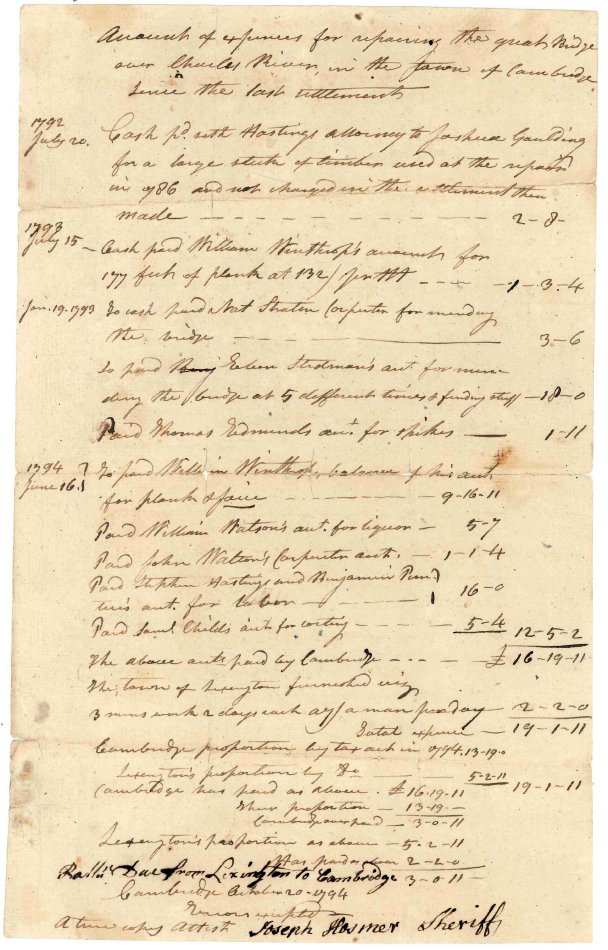 Account of expences for repairing the great Bridge
over Charles River, in the town of Cambridge
since the last settlement
1792
July 20. Cash pd. Seth Hastings attorney to Joshua Gaulding
for a large stick of timber used at the repairs
in 1786 and not charged in the settlement then
made — — — — — — — 2-8-
1793
July 15 — Cash paid William Winthrop's account for
177 feet of plank at 132/ pr M — — — -1-3-4
Jan. 19. 1793 To cash paid Nat Carpenter for mending
the bridge — — — — — 3-6
To paid Eben Stedman's act. for men-
ding the bridge at 5 different times & finding stuff — 18-0
Paid Thomas Edmunds act. for spikes — 1-11
1794
June 16. To paid William Winthrop, balance of his act.
for plank & — — — — 9-16-11
Paid William Watson's act. for liquor — 5-7
Paid John Watson's Carpenter act. — 1-1-4
Paid Stephen Hastings and Benjamin
act. for labor — — — — 16-0
Paid Saml. Childs act. for — — — — 5-4 12-5-2
The above acts paid by Cambridge — — — £16-19-11
The town of Lexington furnished viz
3 mens work 2 days each a 7/ a man pr day — 2-2-0
Total expence — 19-1-11
Cambridge proportion by tax act in 1794. 13-19-0
Lexington's proportion by Do — — — 5-2-11 19-1-11
Cambridge has paid as above. £16.19-11
Their proportion — 13-19 —
Cambridge over paid — 3-0-11
Lexington's proportion as above — 5.2-11
Has paid as above 2-2-0
Balls. Due from Lexington to Cambridge 3-0-11 —
Cambridge October 20 - 1794
Errors excepted
A true copy Attest Joseph Hosmer Sheriff